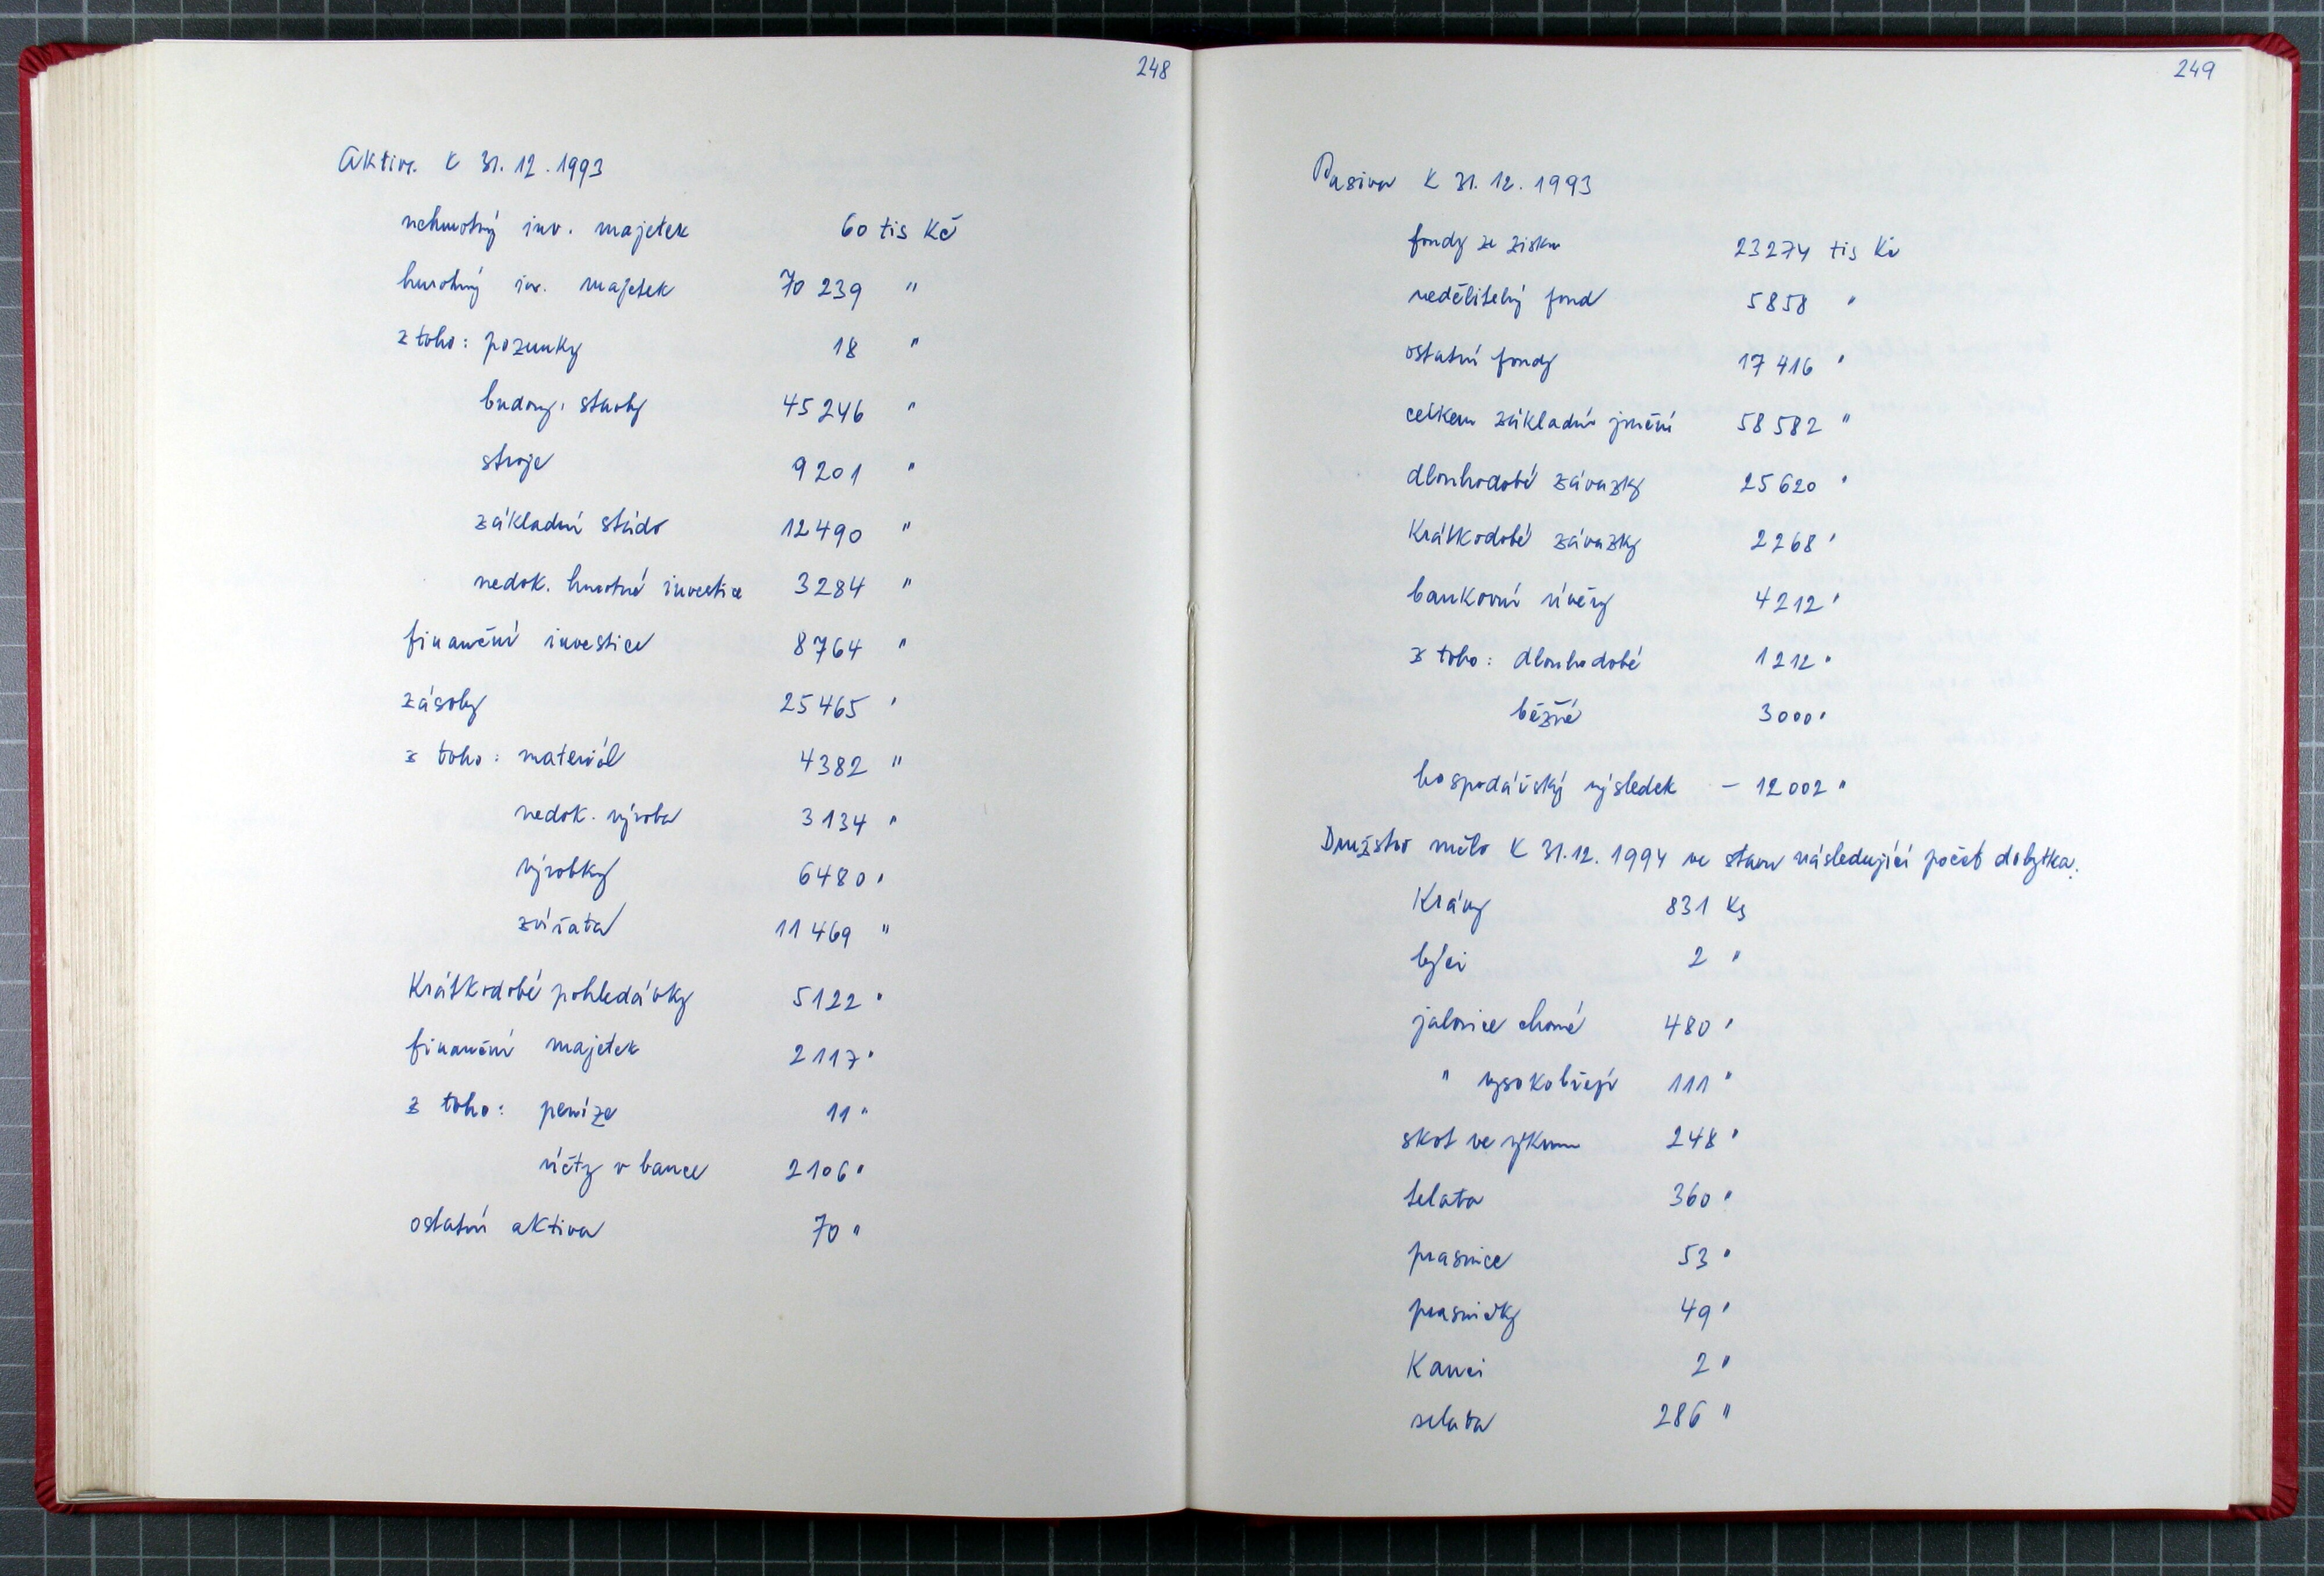 248
Aktiva k 31. 12. 1993
nehmotný inv. majetek 60 tis Kč
hmotný inv. majetek 70 239 "
z toho: pozemky 18 "
budovy, stavby 45 246 "
stroje 9 201 "
základní stádo 12 490 "
nedok. hmotné investice 3 284 "
finanční investice 8 764 "
zásoby 25 465 "
z toho: materiál 4 382 "
nedok. výroba 3 134 "
výrobky 6 480 "
zvířata 11 469 "
Krátkodobé pohledávky 5 122 "
finanční majetek 2 117 "
z toho: peníze 11 "
účty v bance 2 106 "
ostatní aktiva 70 "
249
Pasiva k 31. 12. 1993
fondy ze zisku 23 274 tis Kč
nedělitelný fond 5 858 "
ostatní fondy 17 416 "
celkem základní jmění 58 582 "
dlouhodobé závazky 25 620 "
Krátkodobé závazky 2 268 "
bankovní úvěry 4 212 "
z toho: dlouhodobé 1 212 "
běžné 3 000 "
hospodářský výsledek - 12 002 "
Družstvo mělo k 31.12. 1994 ve stavu následující počet dobytka:
Krávy 831 ks
býci 2 "
jalovice chovné 480 "
" vysokobřezí 111 "
skot ve výkrmu 248 "
telata 360 "
prasnice 53 "
prasničky 49 "
Kanci 2 "
selata 286 "